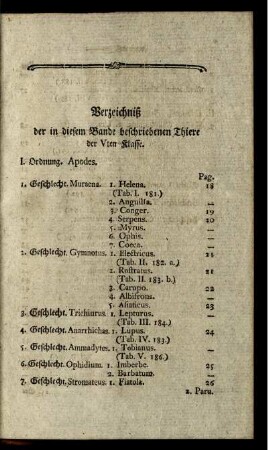 Verzeichniß
der in diesem Bande beschriebenen Thiere
der Vten Klasse.
I. Ordnung. Apodes.
Pag.
1. Geschlecht. Muraena. 1. Helena. 18
(Tab. I. 181.)
2. Anguilla. —
3. Conger. 19
4. Serpens. 20
5. Myrus. —
6. Ophis. —
7. Coeca. —
2. Geschlecht. Gymnotus. 1. Electricus. 21
(Tab. II. 182. a.)
2. Rostratus. 21
(Tab. II. 183. b.)
3. Carapo. 22
4. Albifrons. —
5. Asiaticus. 23
3. Geschlecht. Trichiurus. 1. Lepturus. —
(Tab. III. 184.)
4. Geschlecht. Anarrhichas. 1. Lupus. 24
(Tab. IV. 183.)
5. Geschlecht. Ammadytes. 1. Tobianus. —
(Tab. V. 186.)
6. Geschlecht. Ophidium. 1. Imberbe. 25
2. Barbatum. —
7. Geschlecht. Stromateus. 1. Fiatola. 26
2. Paru.